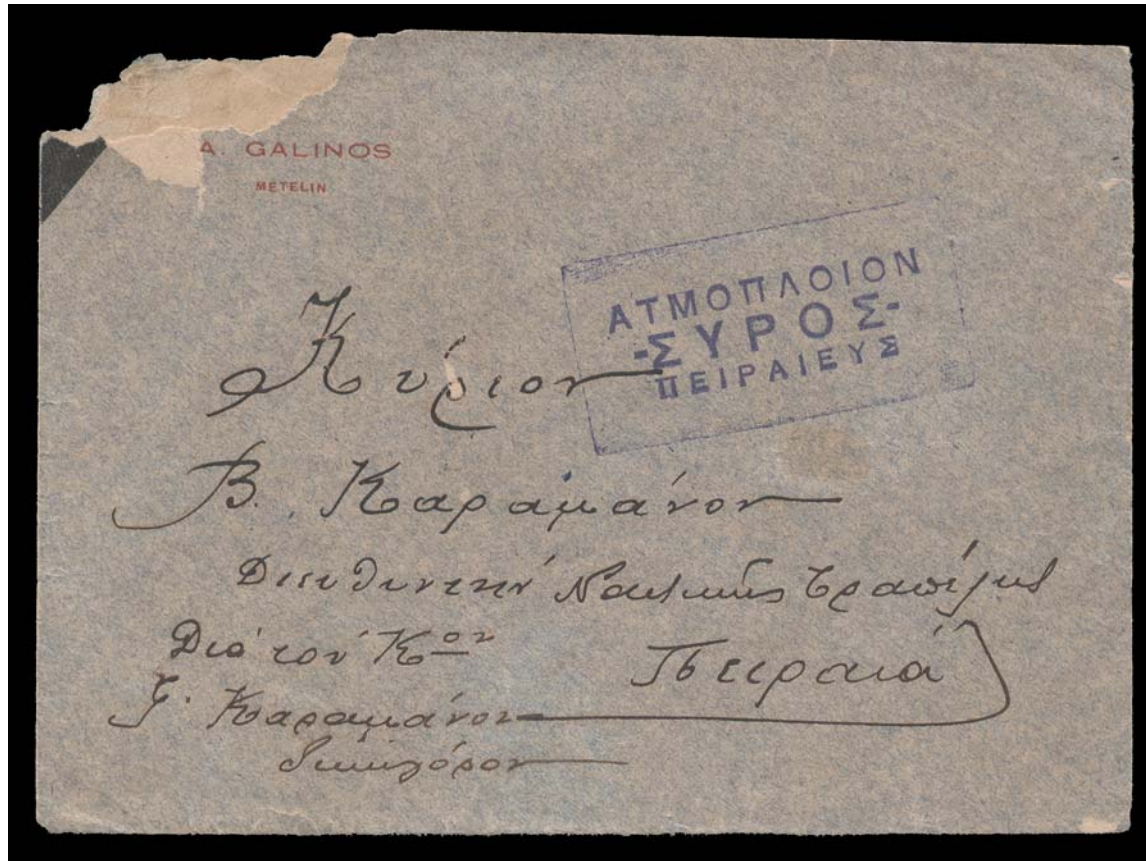 A. GALINOS
METELIN
ΑΤΜΟΠΛΟΙΟΝ
-ΣΥΡΟΣ-
ΠΕΙΡΑΙΕΥΣ
Κύριον
Β. Καραμάνον
Διευθυντήν Ναυτικής Τραπέζης
Πειραιά
Διά τον Κον
Γ. Καραμάνον